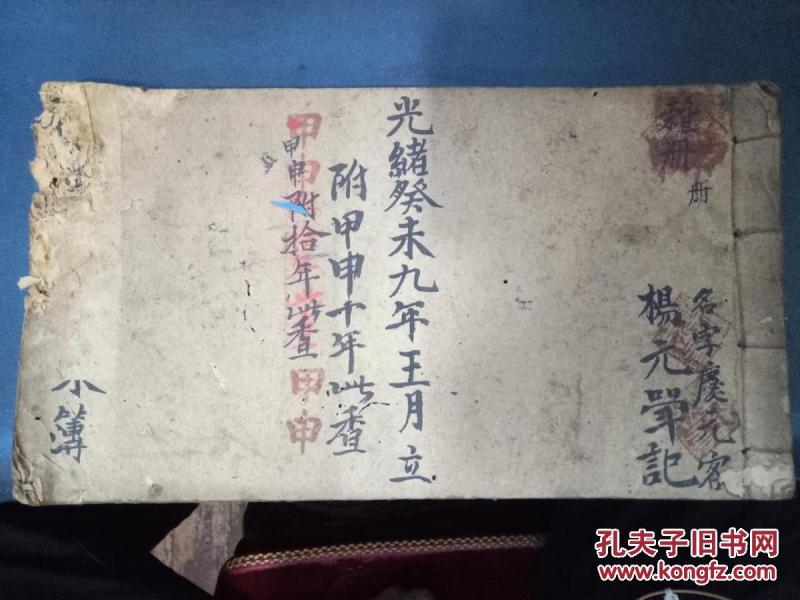 雜冊
冊
名字慶元客
楊元
記
光緒癸未九年王月立
附甲申十年此查
甲申附拾年此查
甲申
甲申
小簿
孔夫子旧书网
www.kongfz.com